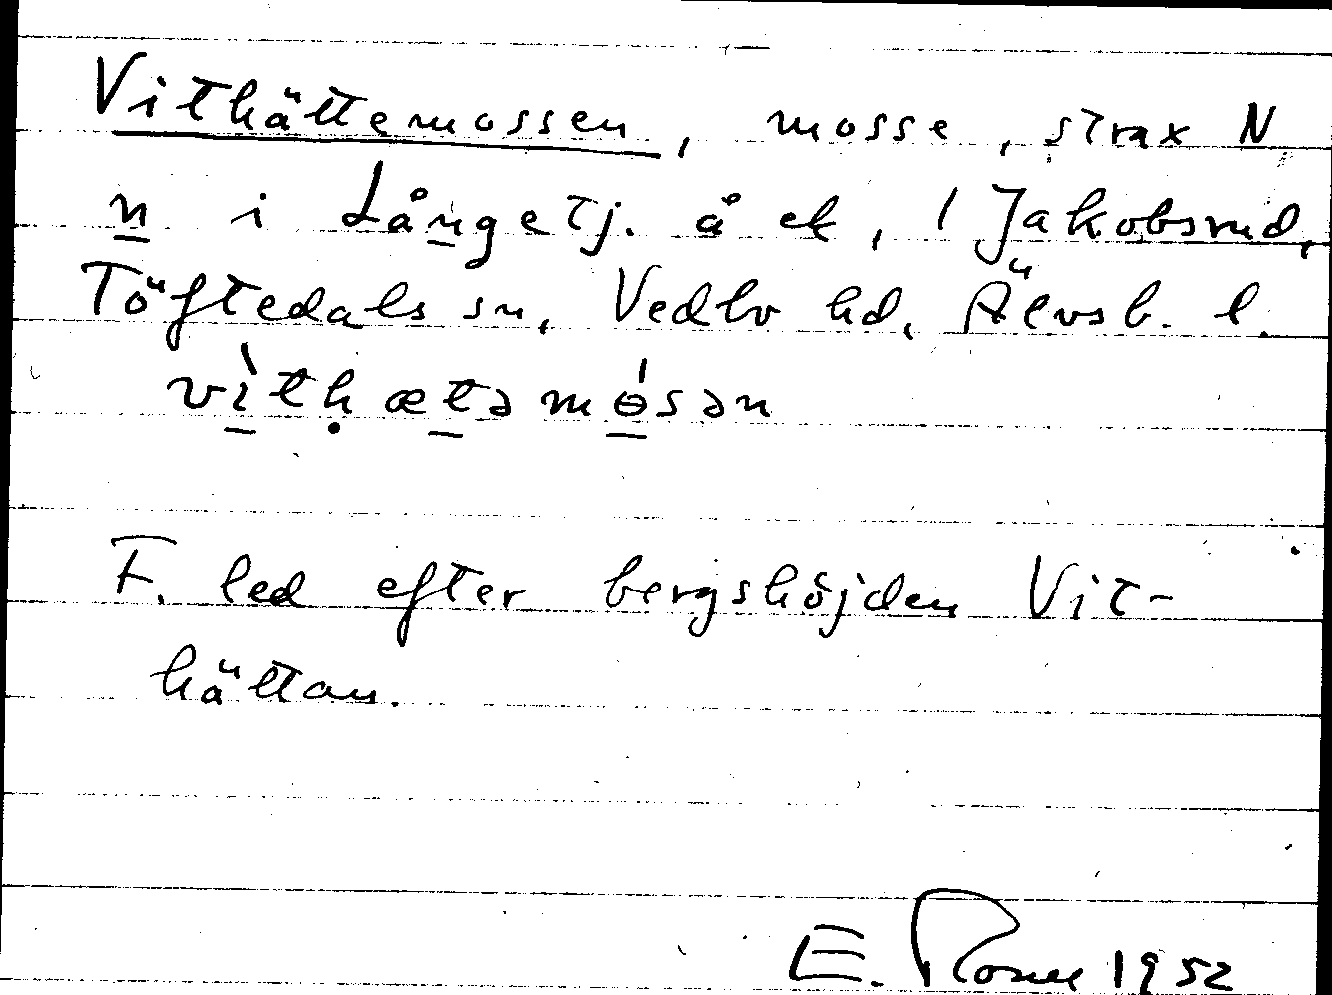 Vithättemossen, mosse, strax N
n i Långetj. å ek, 1 Jakobsrud,
Töftedals sn, Vedbo hd, Älvsb. l.
vìtḥætəmɵ́sən
F. led efter bergshöjden Vit-
hättan.
E. 1952